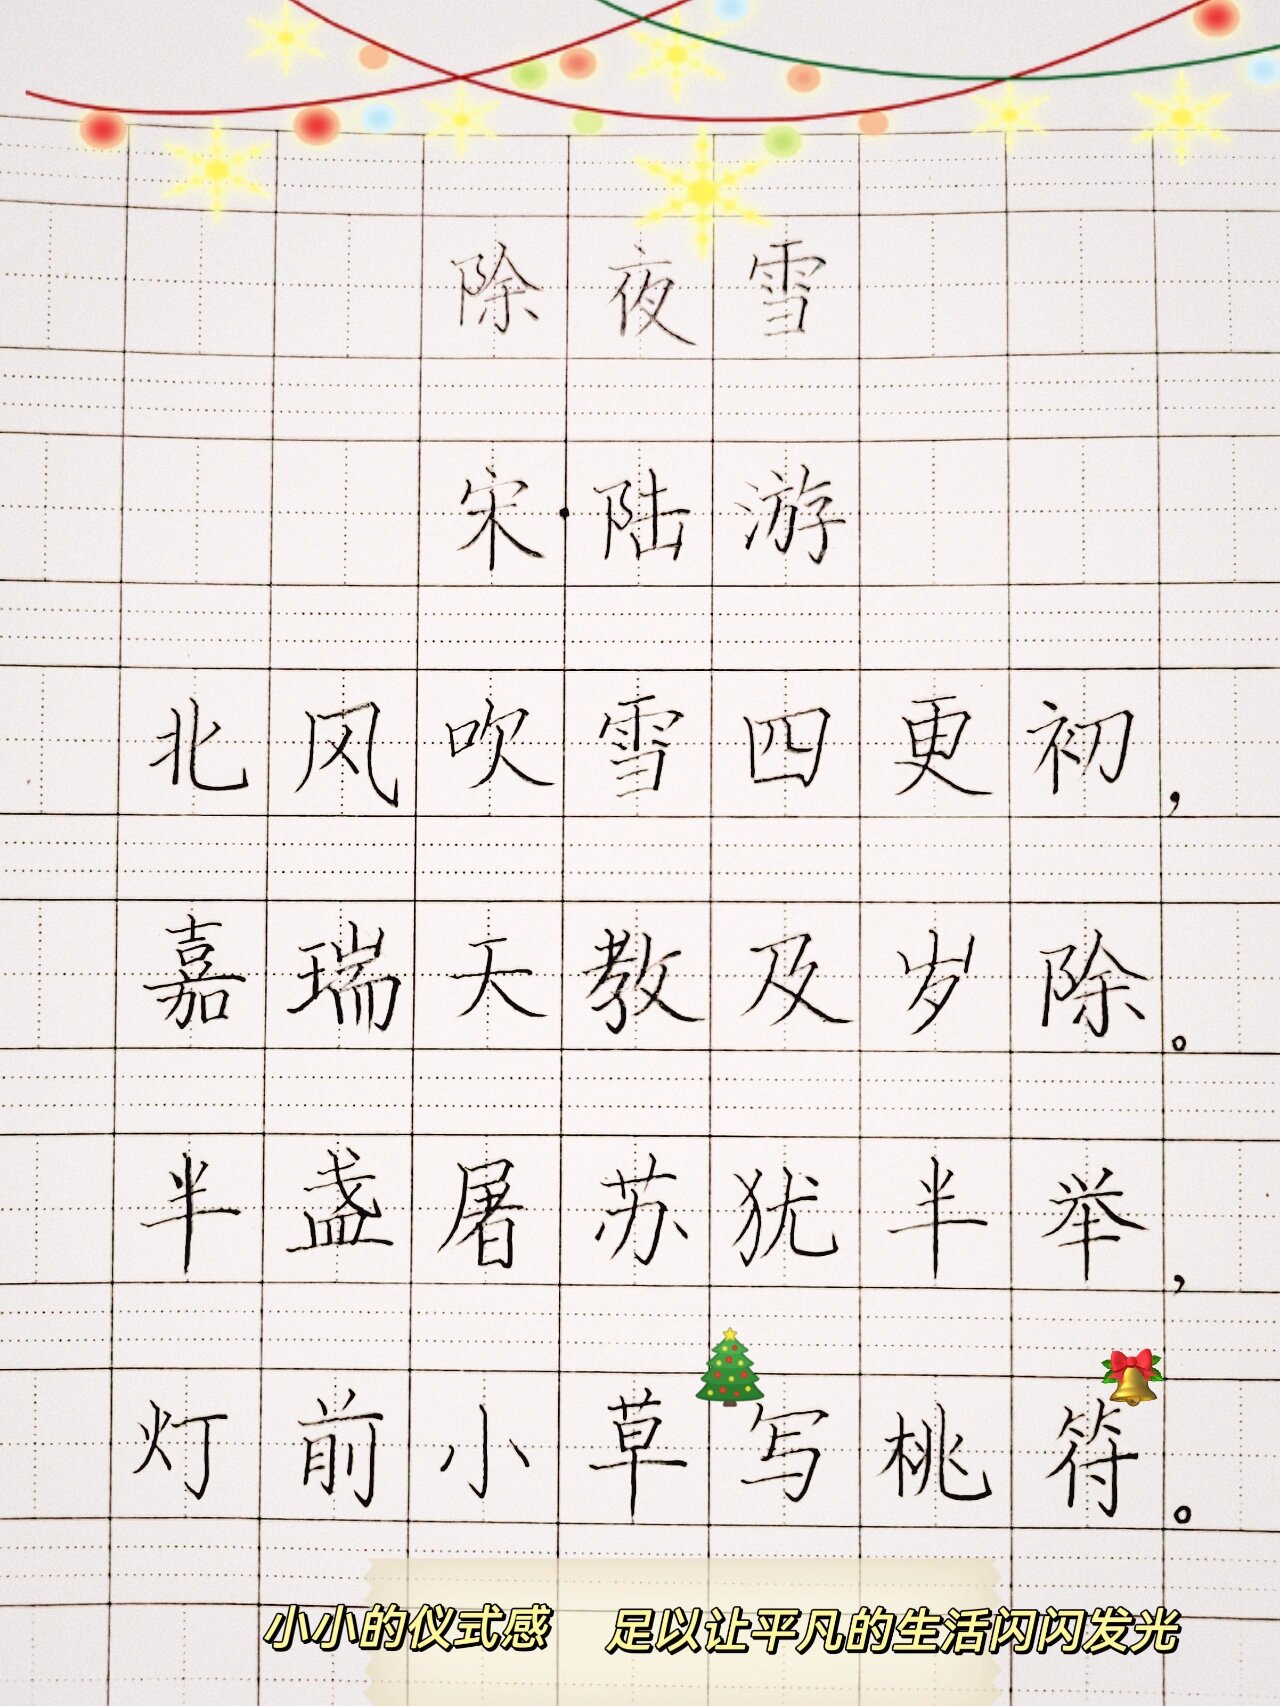 除夜雪
宋·陆游
北风吹雪四更初，
嘉瑞天教及岁除。
半盏屠苏犹半举，
灯前小草写桃符。
小小的仪式感 足以让平凡的生活闪闪发光